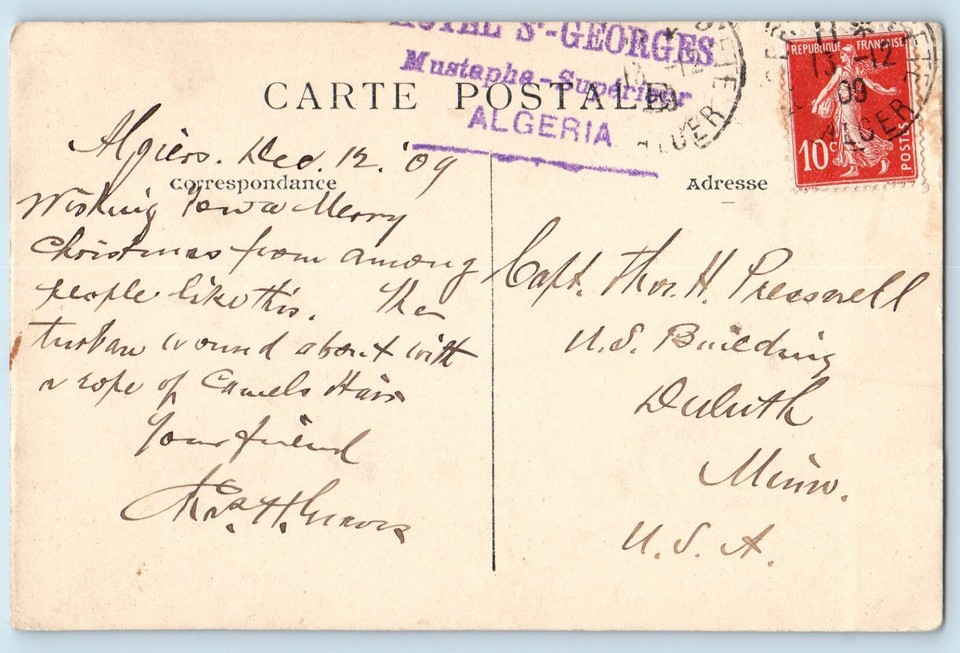 HOTEL St-GEORGES
Mustapha-Supérieur
ALGERIA
CARTE POSTALE
Correspondance
Algiers. Dec. 12. '09
Wishing you a Merry
Christmas from among
people like this. The
turban wound about with
a rope of Camels Hair
Your friend
H.
Adresse
Capt. Thos. H. Pressnell
U.S. Building
Duluth
Minn.
U.S.A.
REPUBLIQUE FRANÇAISE
10c
POSTES
13-12
09
ALGER